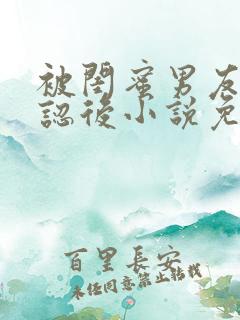 被閨蜜男友
認後小說免
百里長安
未經同意禁止轉載